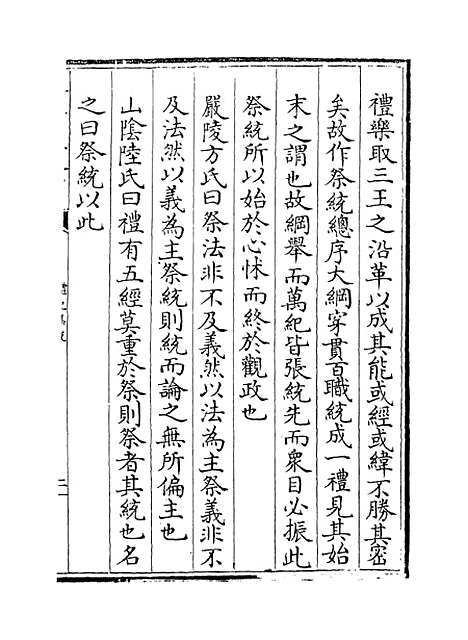 禮樂取三王之沿革以成其能或經或緯不勝其密
矣故作祭統總序大綱穿貫百職統成一禮見其始
末之謂也故綱舉而萬紀皆張統先而衆目必振此
祭統所以始於心怵而終於觀政也
嚴陵方氏曰祭法非不及義然以法為主祭義非不
及法然以義為主祭統則統而論之無所偏主也
山陰陸氏曰禮有五經莫重於祭則祭者其統也名
之曰祭統以此